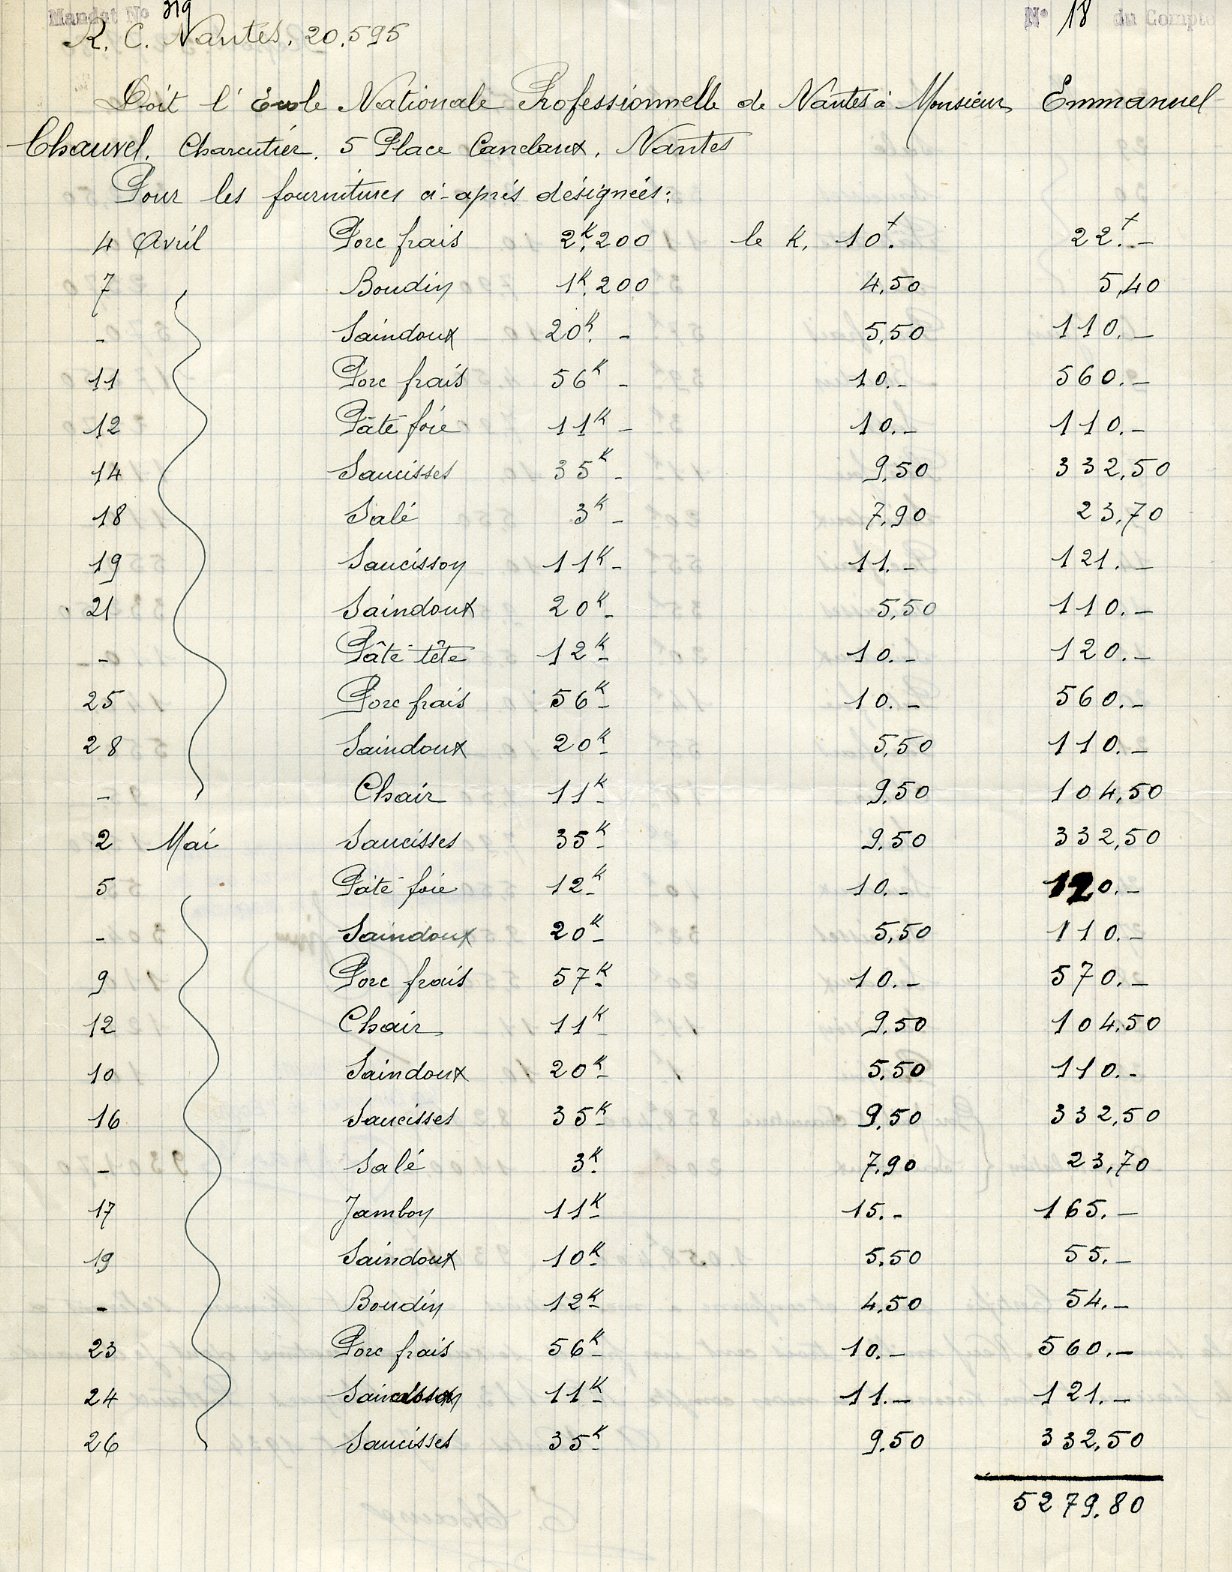 Mandat No 319 No 18 du Compte
R. C. Nantes. 20.595
Doit l'École Nationale Professionnelle de Nantes à Monsieur Emmanuel
Chauvel. Charcutier. 5 Place Canclaux. Nantes
Pour les fournitures ci-après désignées:
4 Avril Porc frais 2K,200 le K. 10f. 22f.-
7 Boudin 1K,200 4,50 5,40
- Saindoux 20K.- 5,50 110.-
11 Porc frais 56K- 10.- 560.-
12 Pâté foie 11K- 10.- 110.-
14 Saucisses 35K- 9,50 332,50
18 Salé 3K- 7,90 23,70
19 Saucisson 11K- 11.- 121.-
21 Saindoux 20K- 5,50 110.-
- Pâté tête 12K- 10.- 120.-
25 Porc frais 56K- 10.- 560.-
28 Saindoux 20K- 5,50 110.-
- Chair 11K- 9,50 104,50
2 Mai Saucisses 35K- 9,50 332,50
5 Pâté foie 12K- 10.- 120.-
- Saindoux 20K- 5,50 110.-
9 Porc frais 57K- 10.- 570.-
12 Chair 11K- 9,50 104,50
10 Saindoux 20K- 5,50 110.-
16 Saucisses 35K- 9,50 332,50
- Salé 3K- 7,90 23,70
17 Jambon 11K- 15.- 165.-
19 Saindoux 10K- 5,50 55.-
- Boudin 12K- 4,50 54.-
23 Porc frais 56K- 10.- 560.-
24 11K- 11.- 121.-
26 Saucisses 35K- 9,50 332,50
5279,80